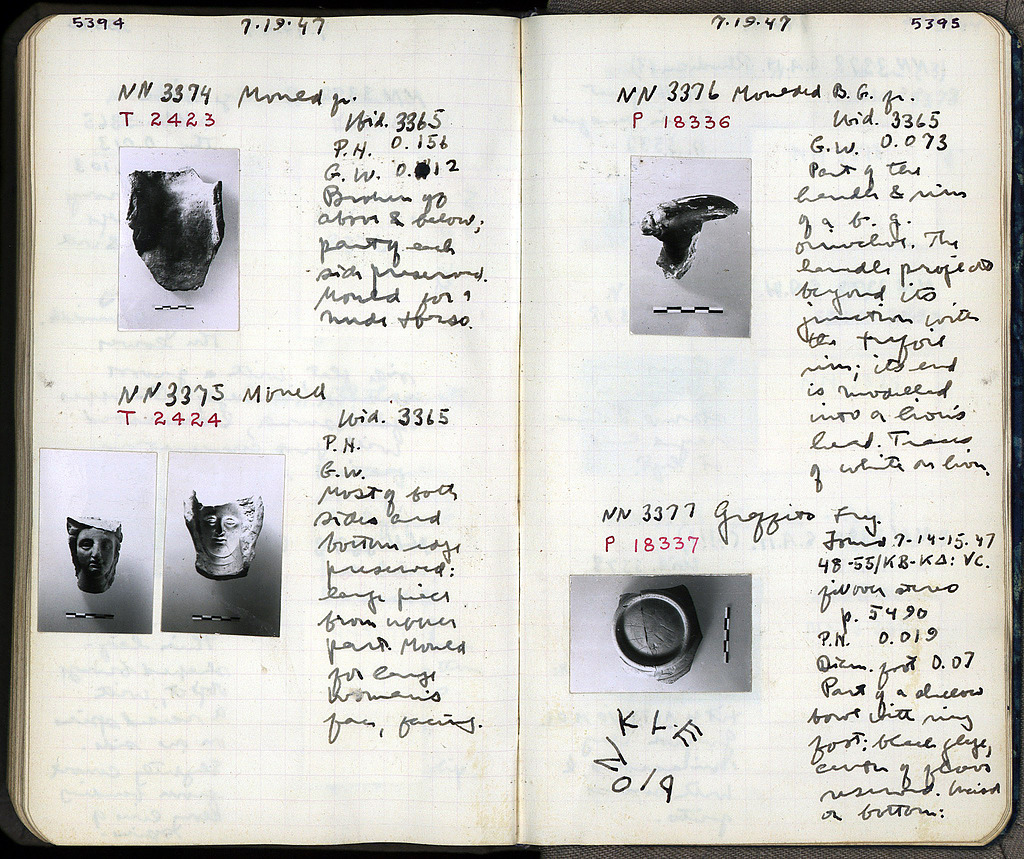 5394
7·19·47
NN 3374 Mould fr.
T 2423
Ibid. 3365
P.H. 0.156
G.W. 0.12
Broken off
above & below;
part of each
side preserved.
Mould for a
nude torso.
NN 3375 Mould
T 2424
Ibid. 3365
P.H.
G.W.
Most of both
sides and
bottom edge
preserved:
large piece
from upper
part. Mould
for large
woman's
face, facing.
7·19·47
5395
NN 3376 Moulded B.G. fr.
P 18336
Ibid. 3365
G.W. 0.073
Part of the
handle & rim
of a b. g.
oinochoe. The
handle projects
beyond its
junction with
the trefoil
rim; its end
is modelled
into a lion's
head. Traces
of white on lion.
NN 3377 Graffito Frg.
P 18337
Found 7-14-15.47
48-55/ΚΒ-ΚΔ: VC.
p. 5490
P.H. 0.019
Diam. foot 0.07
Part of a shallow
bowl with ring
foot; black glaze,
reserved. Incised
on bottom:
KLE